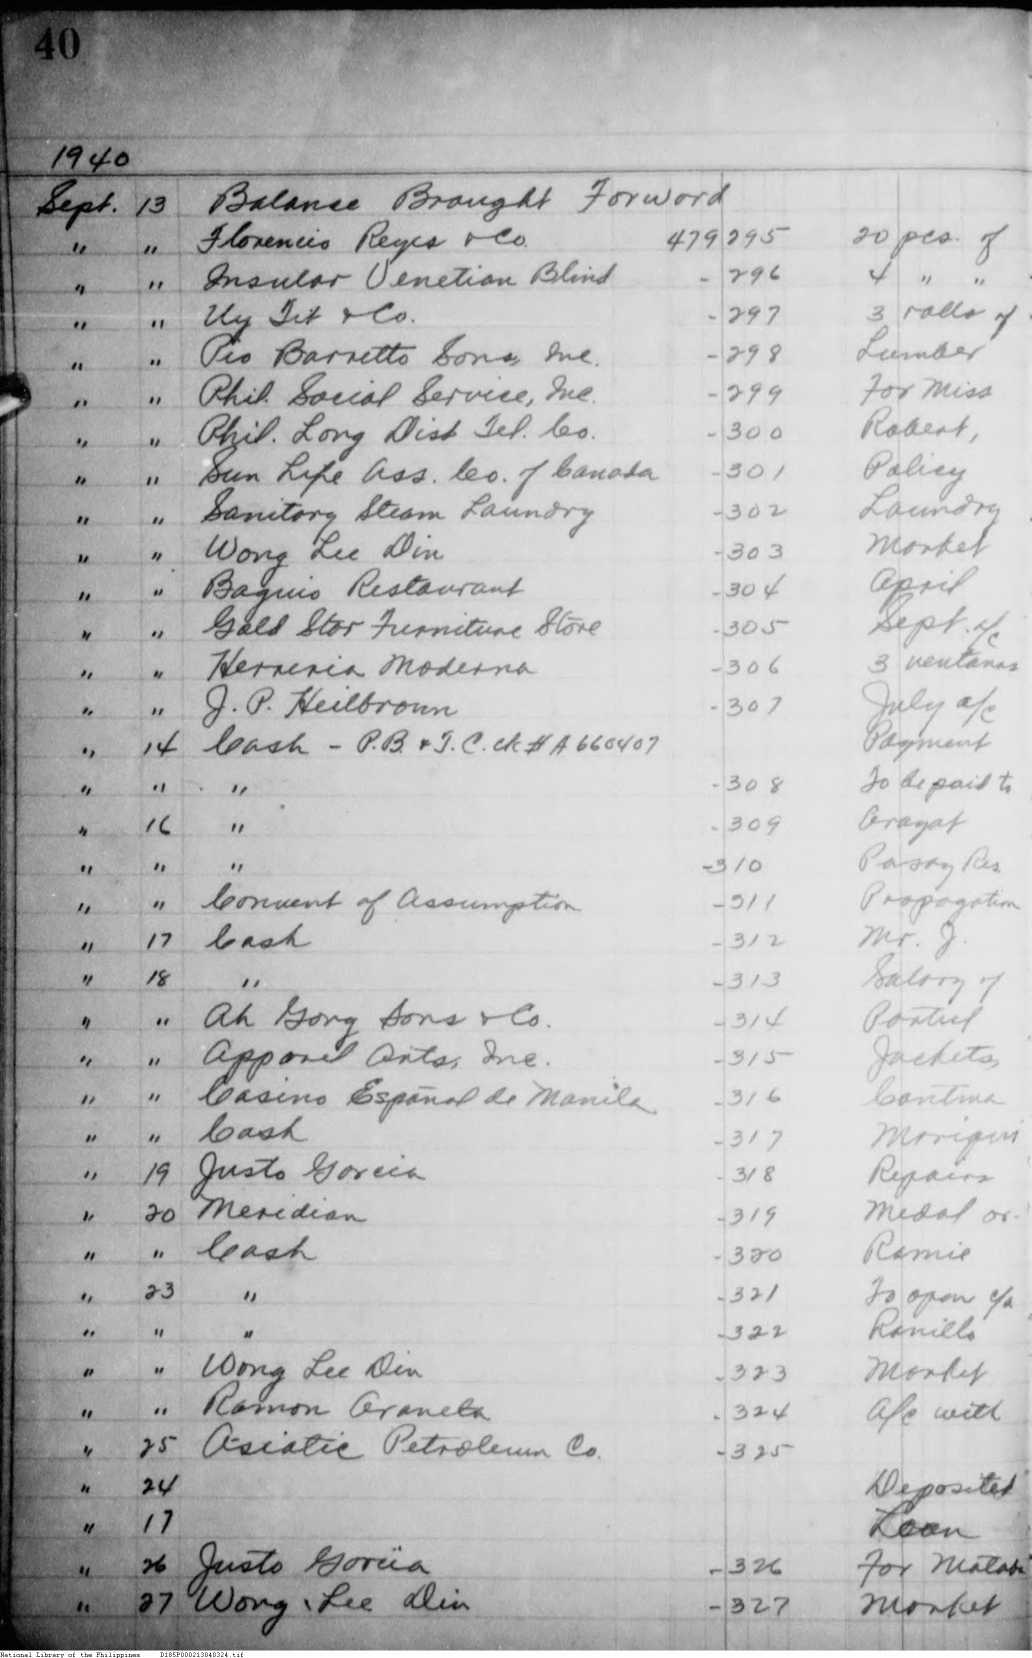 40
1940
Sept. 13 Balance Brought Forword
" " Florencio Reyes & Co. 479 295 20 pcs. of
" " Insular Venetian Blind - 296 4 " "
" " Uy Tit & Co. - 297 3 rolls of
" " Pio Barretto Sons, Inc. - 298 Lumber
" " Phil. Social Service, Inc. - 299 For Miss
" " Phil. Long Dist Tel. Co. - 300 Robert,
" " Sun Life Ass. Co. of Canada - 301 Policy
" " Sanitary Steam Laundry - 302 Laundry
" " Wong Lee Din - 303 Market
" " Baguio Restaurant - 304 April
" " Gold Star Furniture Store - 305 Sept. a/c
" " Herreria Moderna - 306 3 ventanas
" " J. P. Heilbronn - 307 July a/c
" 14 Cash - P.B. & T.C. ck # A 660407 Payment
" " " - 308 To be paid to
" 16 " - 309 Arayat
" " " - 310 Pasay Res.
" " Convent of Assumption - 311 Propagation
" 17 Cash - 312 Mr. J.
" 18 " - 313 Salary of
" " Ah Gong Sons & Co. - 314
" " Apparel Arts, Inc. - 315 Jackets,
" " Casino Español de Manila - 316 Cantina
" " Cash - 317
" 19 Justo Garcia - 318 Repairs
" 20 Meridian - 319 Medal or
" " Cash - 320 Ramie
" 23 " - 321 To open c/a
" " " - 322 Ranillo
" " Wong Lee Din - 323 Market
" " Ramon Araneta - 324 A/c with
" 25 Asiatic Petroleum Co. - 325
" 24 Deposited
" 17 Loan
" 26 Justo Garcia - 326 For
" 27 Wong Lee Din - 327 Market
National Library of the Philippines D185P000213840324.tif